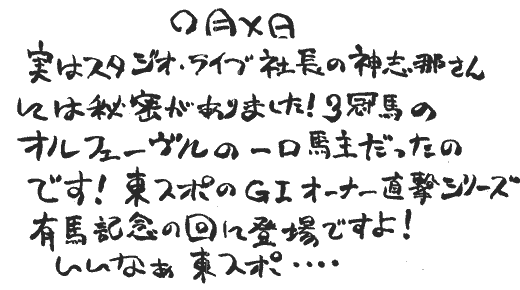 〇月×日
実はスタジオ・ライブ社長の神志那さん
には秘密がありました!3冠馬の
オルフェーヴルの一口馬主だったの
です!東スポのGIオーナー直撃シリーズ
有馬記念の回に登場ですよ!
いいなぁ東スポ・・・・